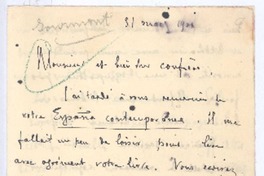 Gourmont
31 mars 1901
Monsieur et bien cher confrère
J'ai tardé à vous remercier de
votre España contemporánea. Il me
fallait un peu de loisir pour lire
avec agrément votre livre. Vous